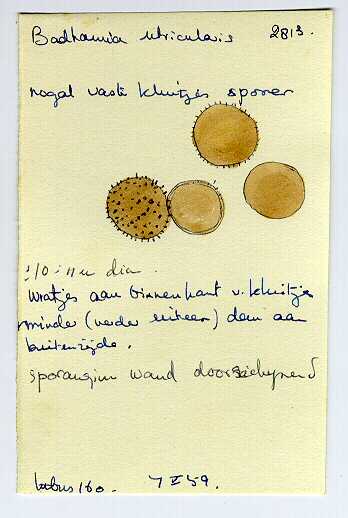 Badhamia utricularis 2813.
nogal vaste kluitjes sporen
10-11 u diam.
wratjes aan binnenkant v. kluitjes
minder (verder uiteen) dan aan
buitenzijde.
sporangium wand doorschijnend
7 V 59.